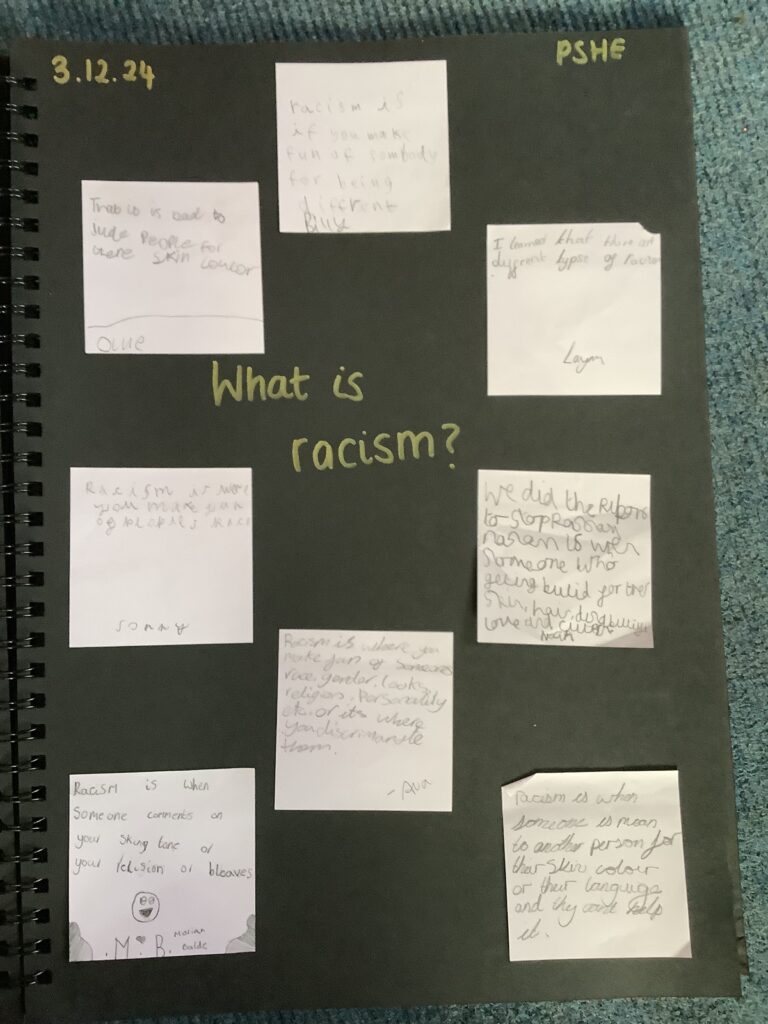 3.12.24
PSHE
racism is
if you make
fun of sombody
for being
different
That is is bad to
Juge PEOPLE FOR
there SKIN coulor
OLLIE
I learned that there are
different typse of racism
Layan
What is
racism?
Racism is were
you make fun
of pepoles race
sonny
We did the
to stop
is wen
Someone who
getting bulid for ther
Skin, hair,
love and culture
Racism is where you
make fun of someones
race, gender, looks,
religion, Personality
etc. or its where
you discrimanate
them.
- Ava
Racism is when
Someone comments on
your Sking tone or
your relision or bleaves
.M ♥ B.
racism is when
someone is mean
to another person for
their skin colour
or their language
and they cant help
it.